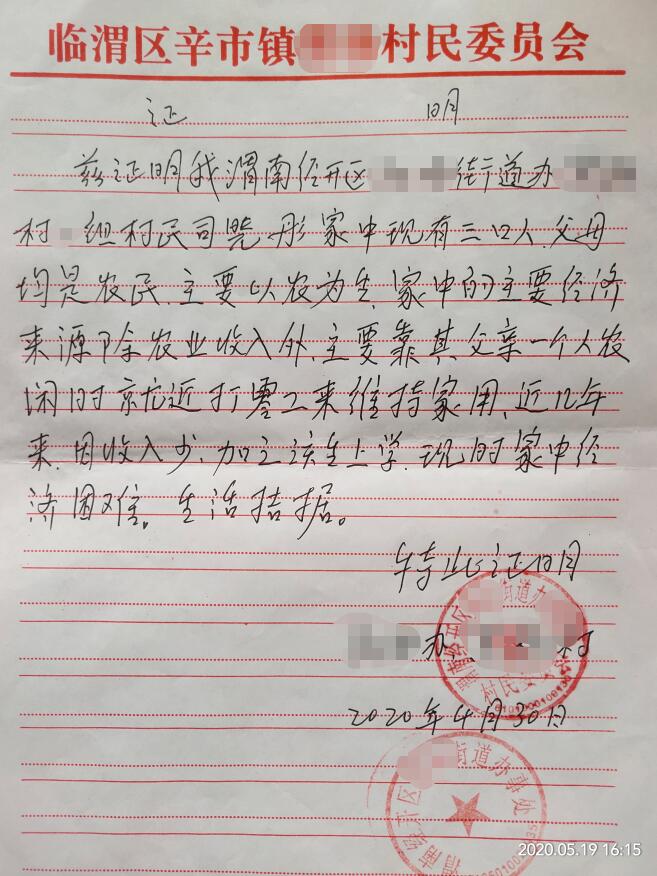 临渭区辛市镇 村民委员会
证 明
兹证明我渭南经开区 街道办
村 组村民司 彤家中现有三口人.父母
均是农民、主要以农为生、家中的主要经济
来源除农业收入外、主要靠其父亲一个人农
闲时就近打零工来维持家用、近几年
来.因收入少、加之该生上学.现时家中经
济困难。生活拮据。
特此证明
办 村
村民委
2020年4月30日
渭南经开区 街道办事处
2020.05.19 16:15